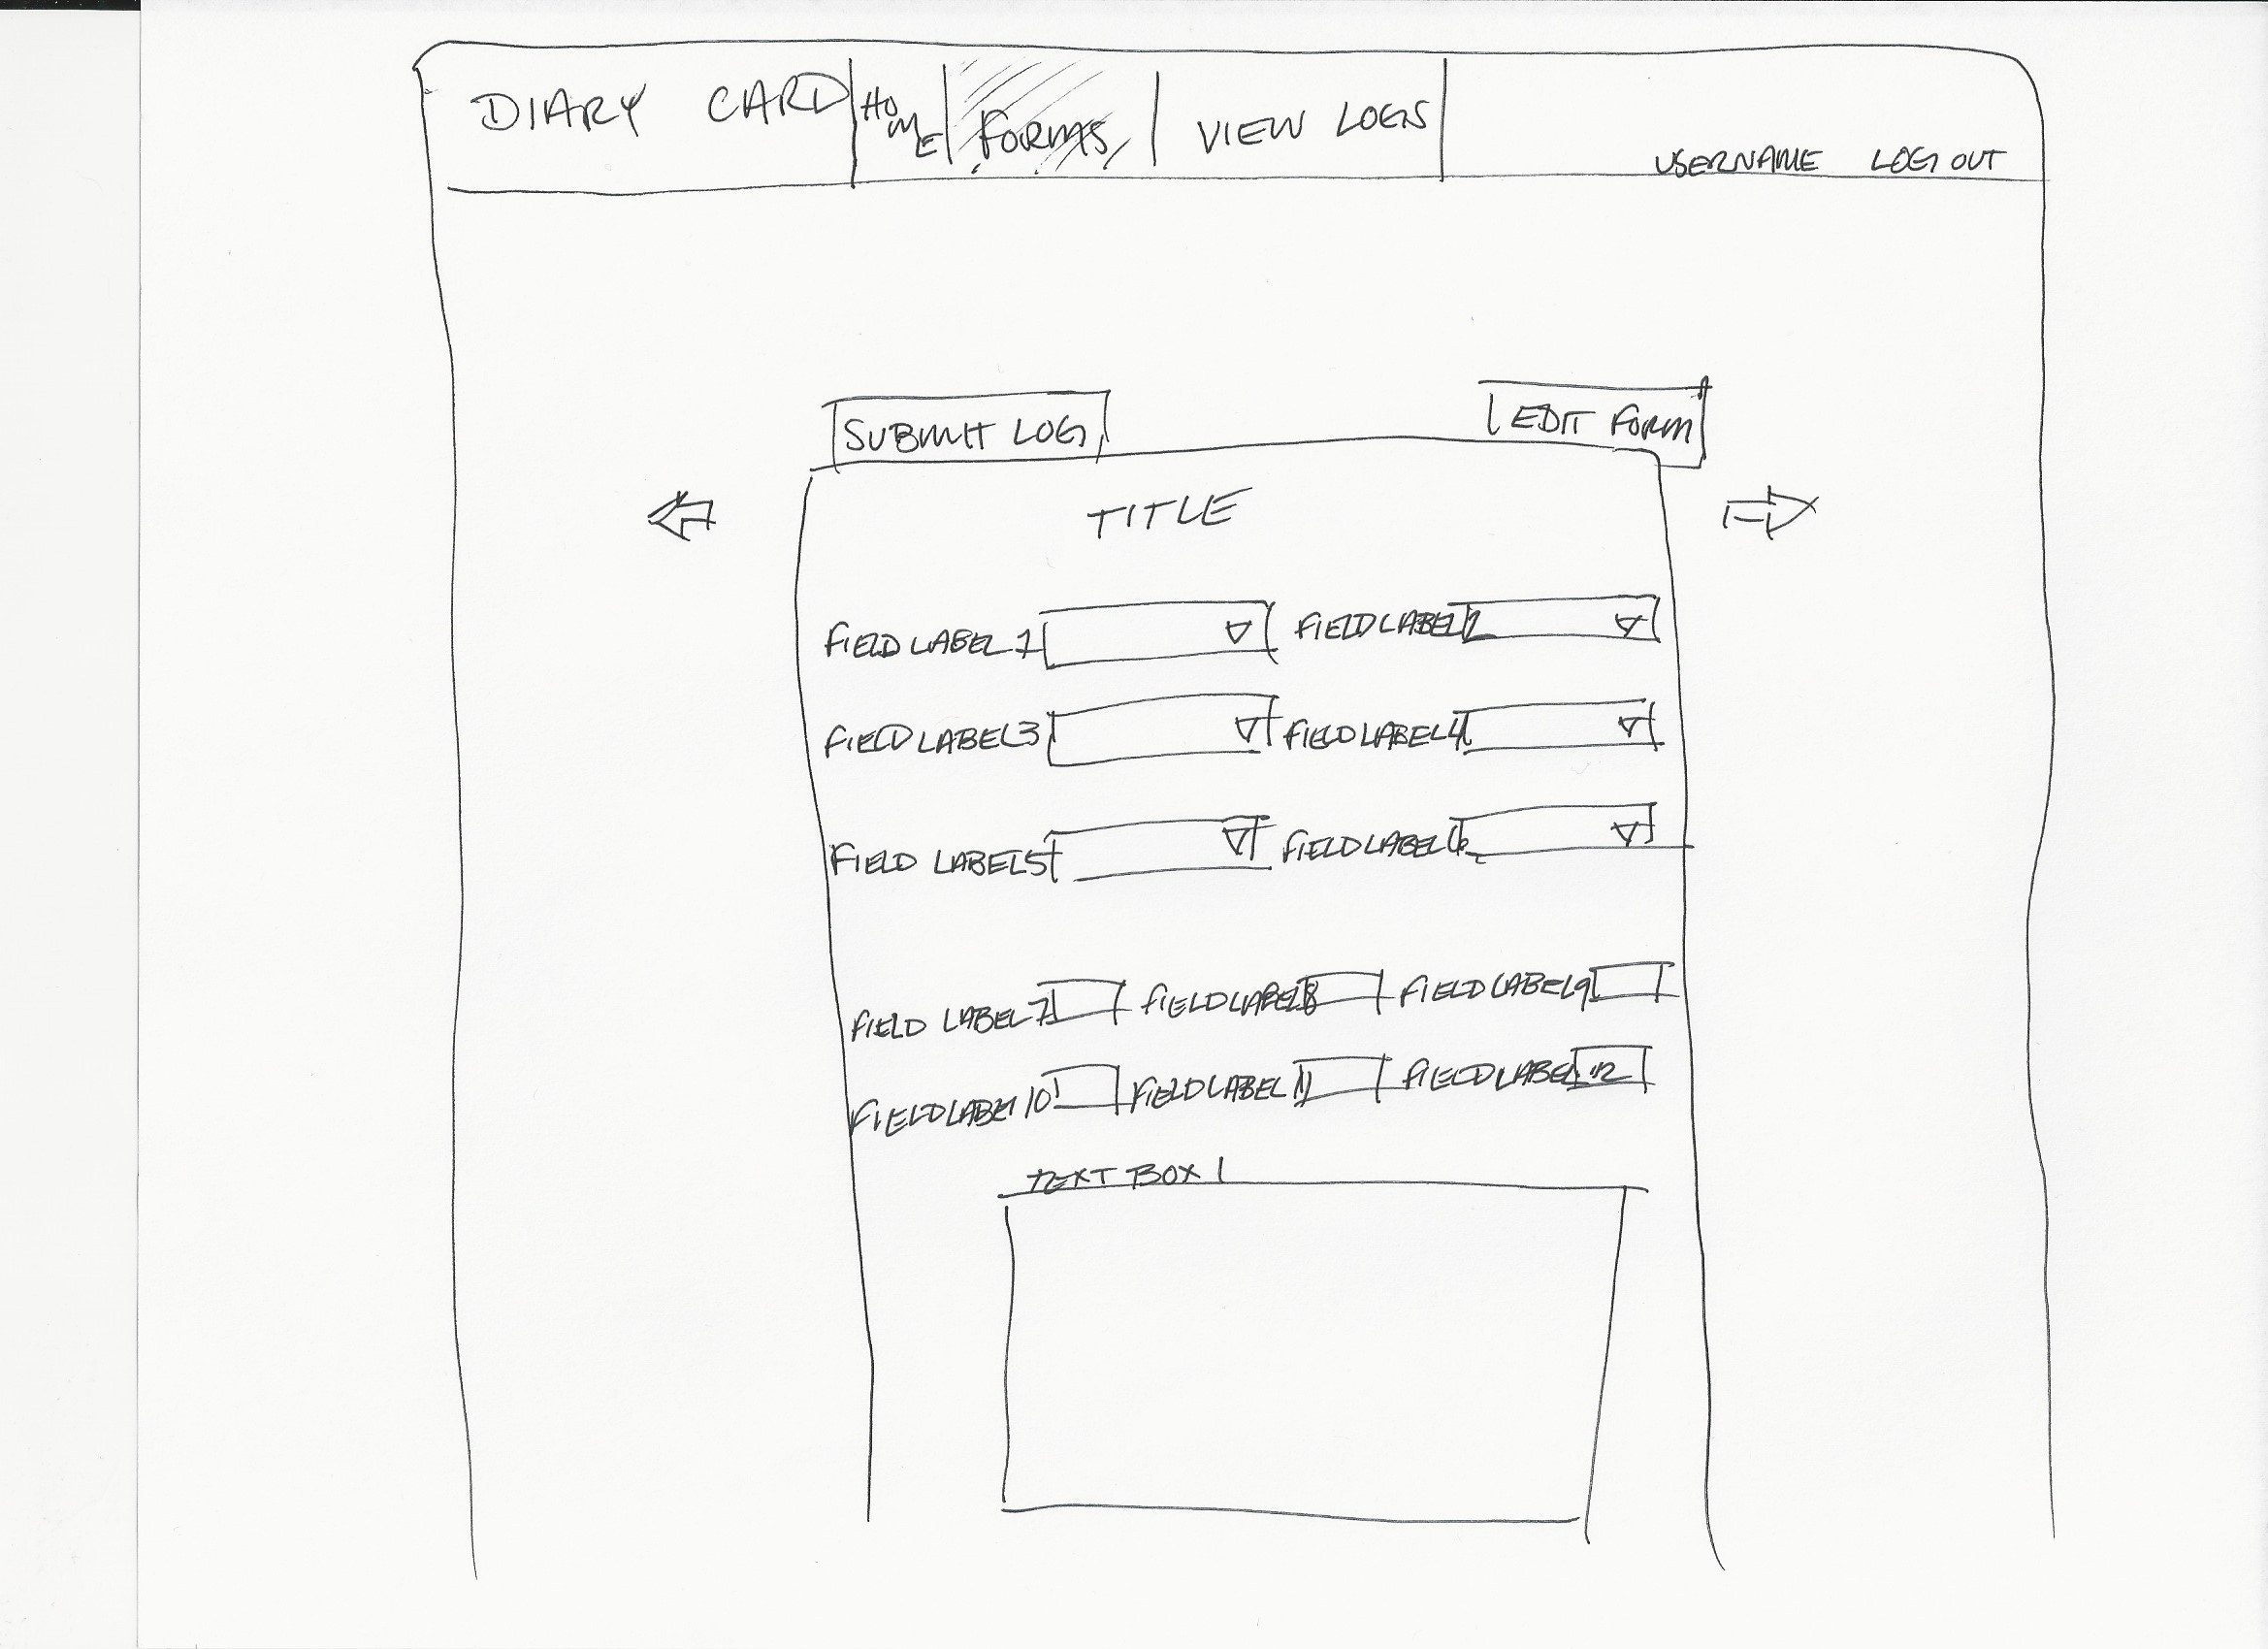 DIARY CARD HOME FORMS VIEW LOGS USERNAME LOG OUT
SUBMIT LOG EDIT FORM
TITLE
FIELD LABEL 1 FIELD LABEL 2
FIELD LABEL 3 FIELD LABEL 4
FIELD LABEL 5 FIELD LABEL 6
FIELD LABEL 7 FIELD LABEL 8 FIELD LABEL 9
FIELD LABEL 10 FIELD LABEL 11 FIELD LABEL 12
TEXT BOX 1